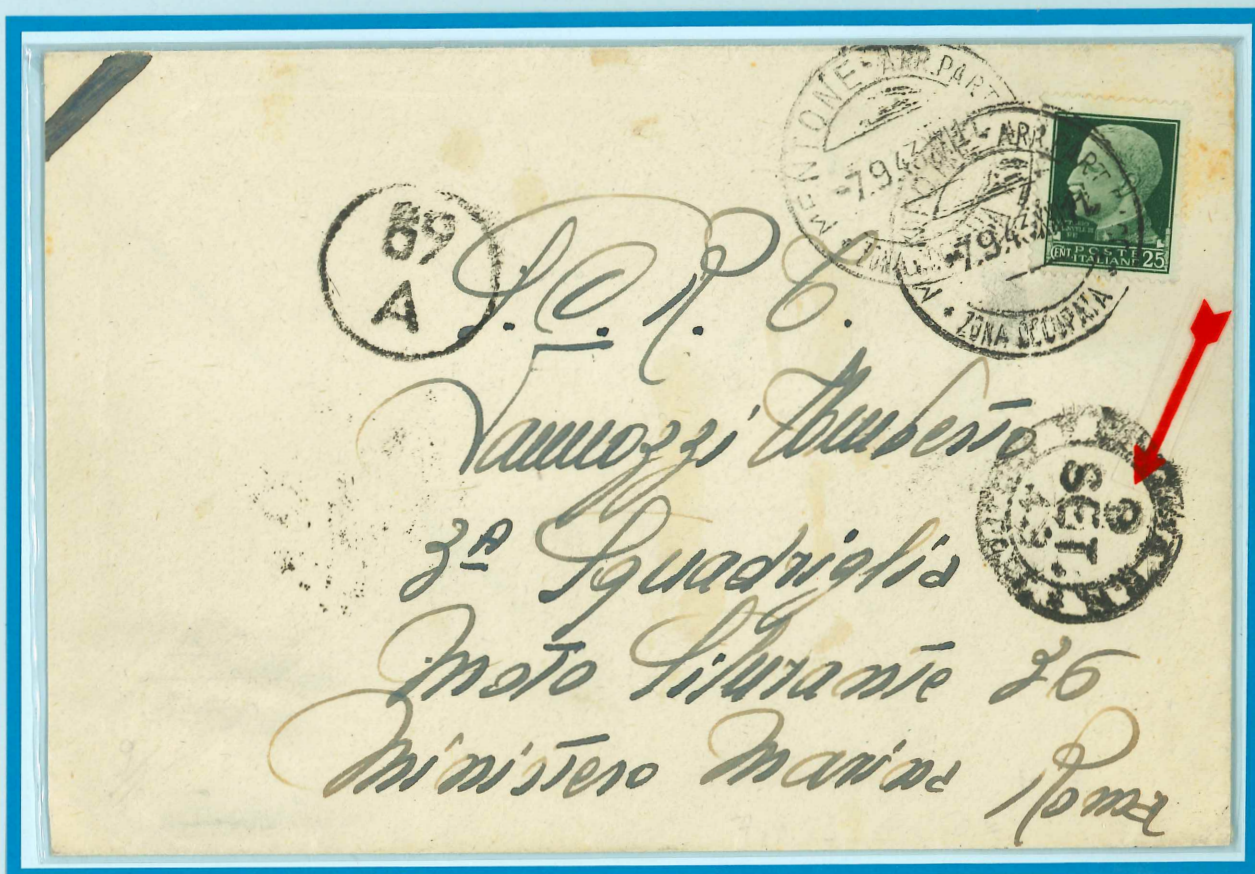 MENTONE - ARR. PART
-7.9.43
MENTONE - ARR. PART
-7.9.43
* ZONA OCCUPATA *
POSTE
ITALIANE
CENT. 25
A
S. C. R. T.
Vannozzi Umberto
3ª Squadriglia
Moto Silurante 36
Ministero Marina Roma
9
SET.
43